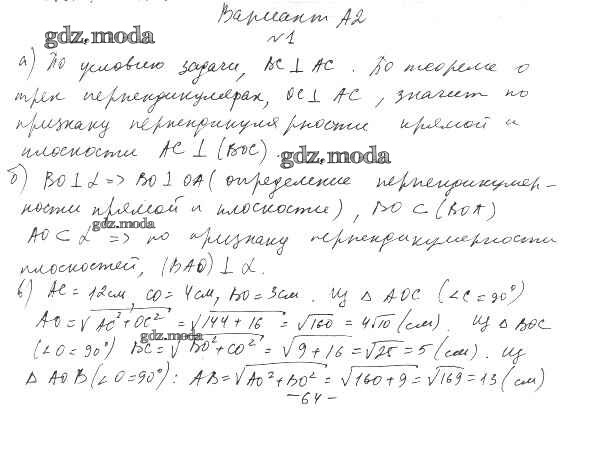 Вариант А2
gdz.moda
№1
а) По условию задачи, BC ⊥ AC. По теореме о
трех перпендикулярах, OC ⊥ AC, значит по
признаку перпендикулярности прямой и
плоскости AC ⊥ (BOC).
gdz.moda
б) BO ⊥ α => BO ⊥ OA (определение перпендикуляр-
ности прямой и плоскости), BO ⊂ (BOA)
gdz.moda
AO ⊂ α => по признаку перпендикулярности
плоскостей, (BAO) ⊥ α.
в) AC = 12см, CO = 4см, BO = 3см. Из △ AOC (∠C = 90°)
AO = √AC² + OC² = √144 + 16 = √160 = 4√10 (см). Из △ BOC
gdz.moda
(∠O = 90°) BC = √BO² + CO² = √9 + 16 = √25 = 5 (см). Из
△ AOB (∠O = 90°): AB = √AO² + BO² = √160 + 9 = √169 = 13 (см)
-64-